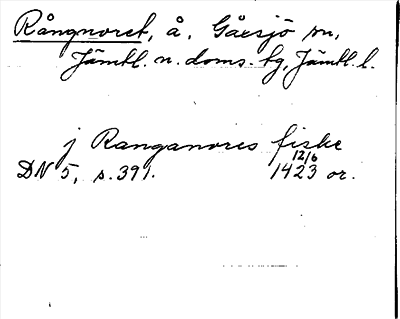 Rångnoret, å, Gåxsjö sn,
Jämtl. n. doms. tg, Jämtl. l.
j Ranganores fiske
DN 5, s. 391. 12/6 1423 or.